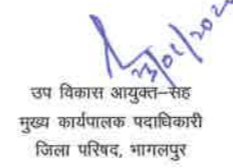 उप विकास आयुक्त–सह
मुख्य कार्यपालक पदाधिकारी
जिला परिषद, भागलपुर